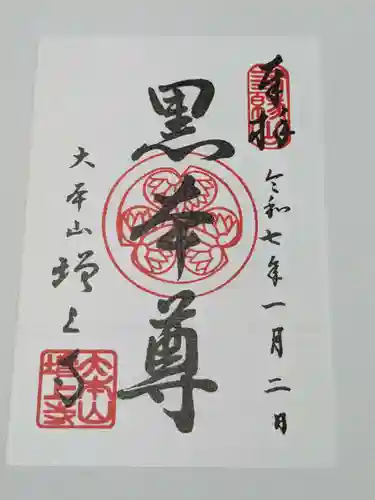 奉拝
令和七年一月二日
黒本尊
大本山
増上寺
大本山
増上寺